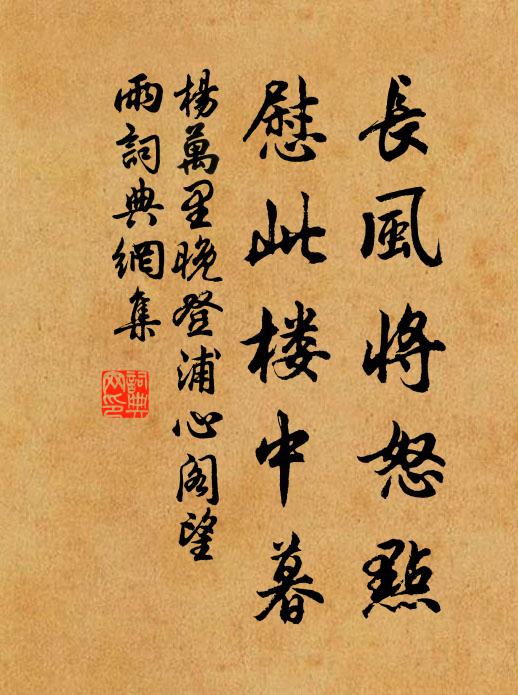 長風將怒點
慰此楼中暮
楊萬里晚登浦心阁望
雨詞典網集
詞典
网印